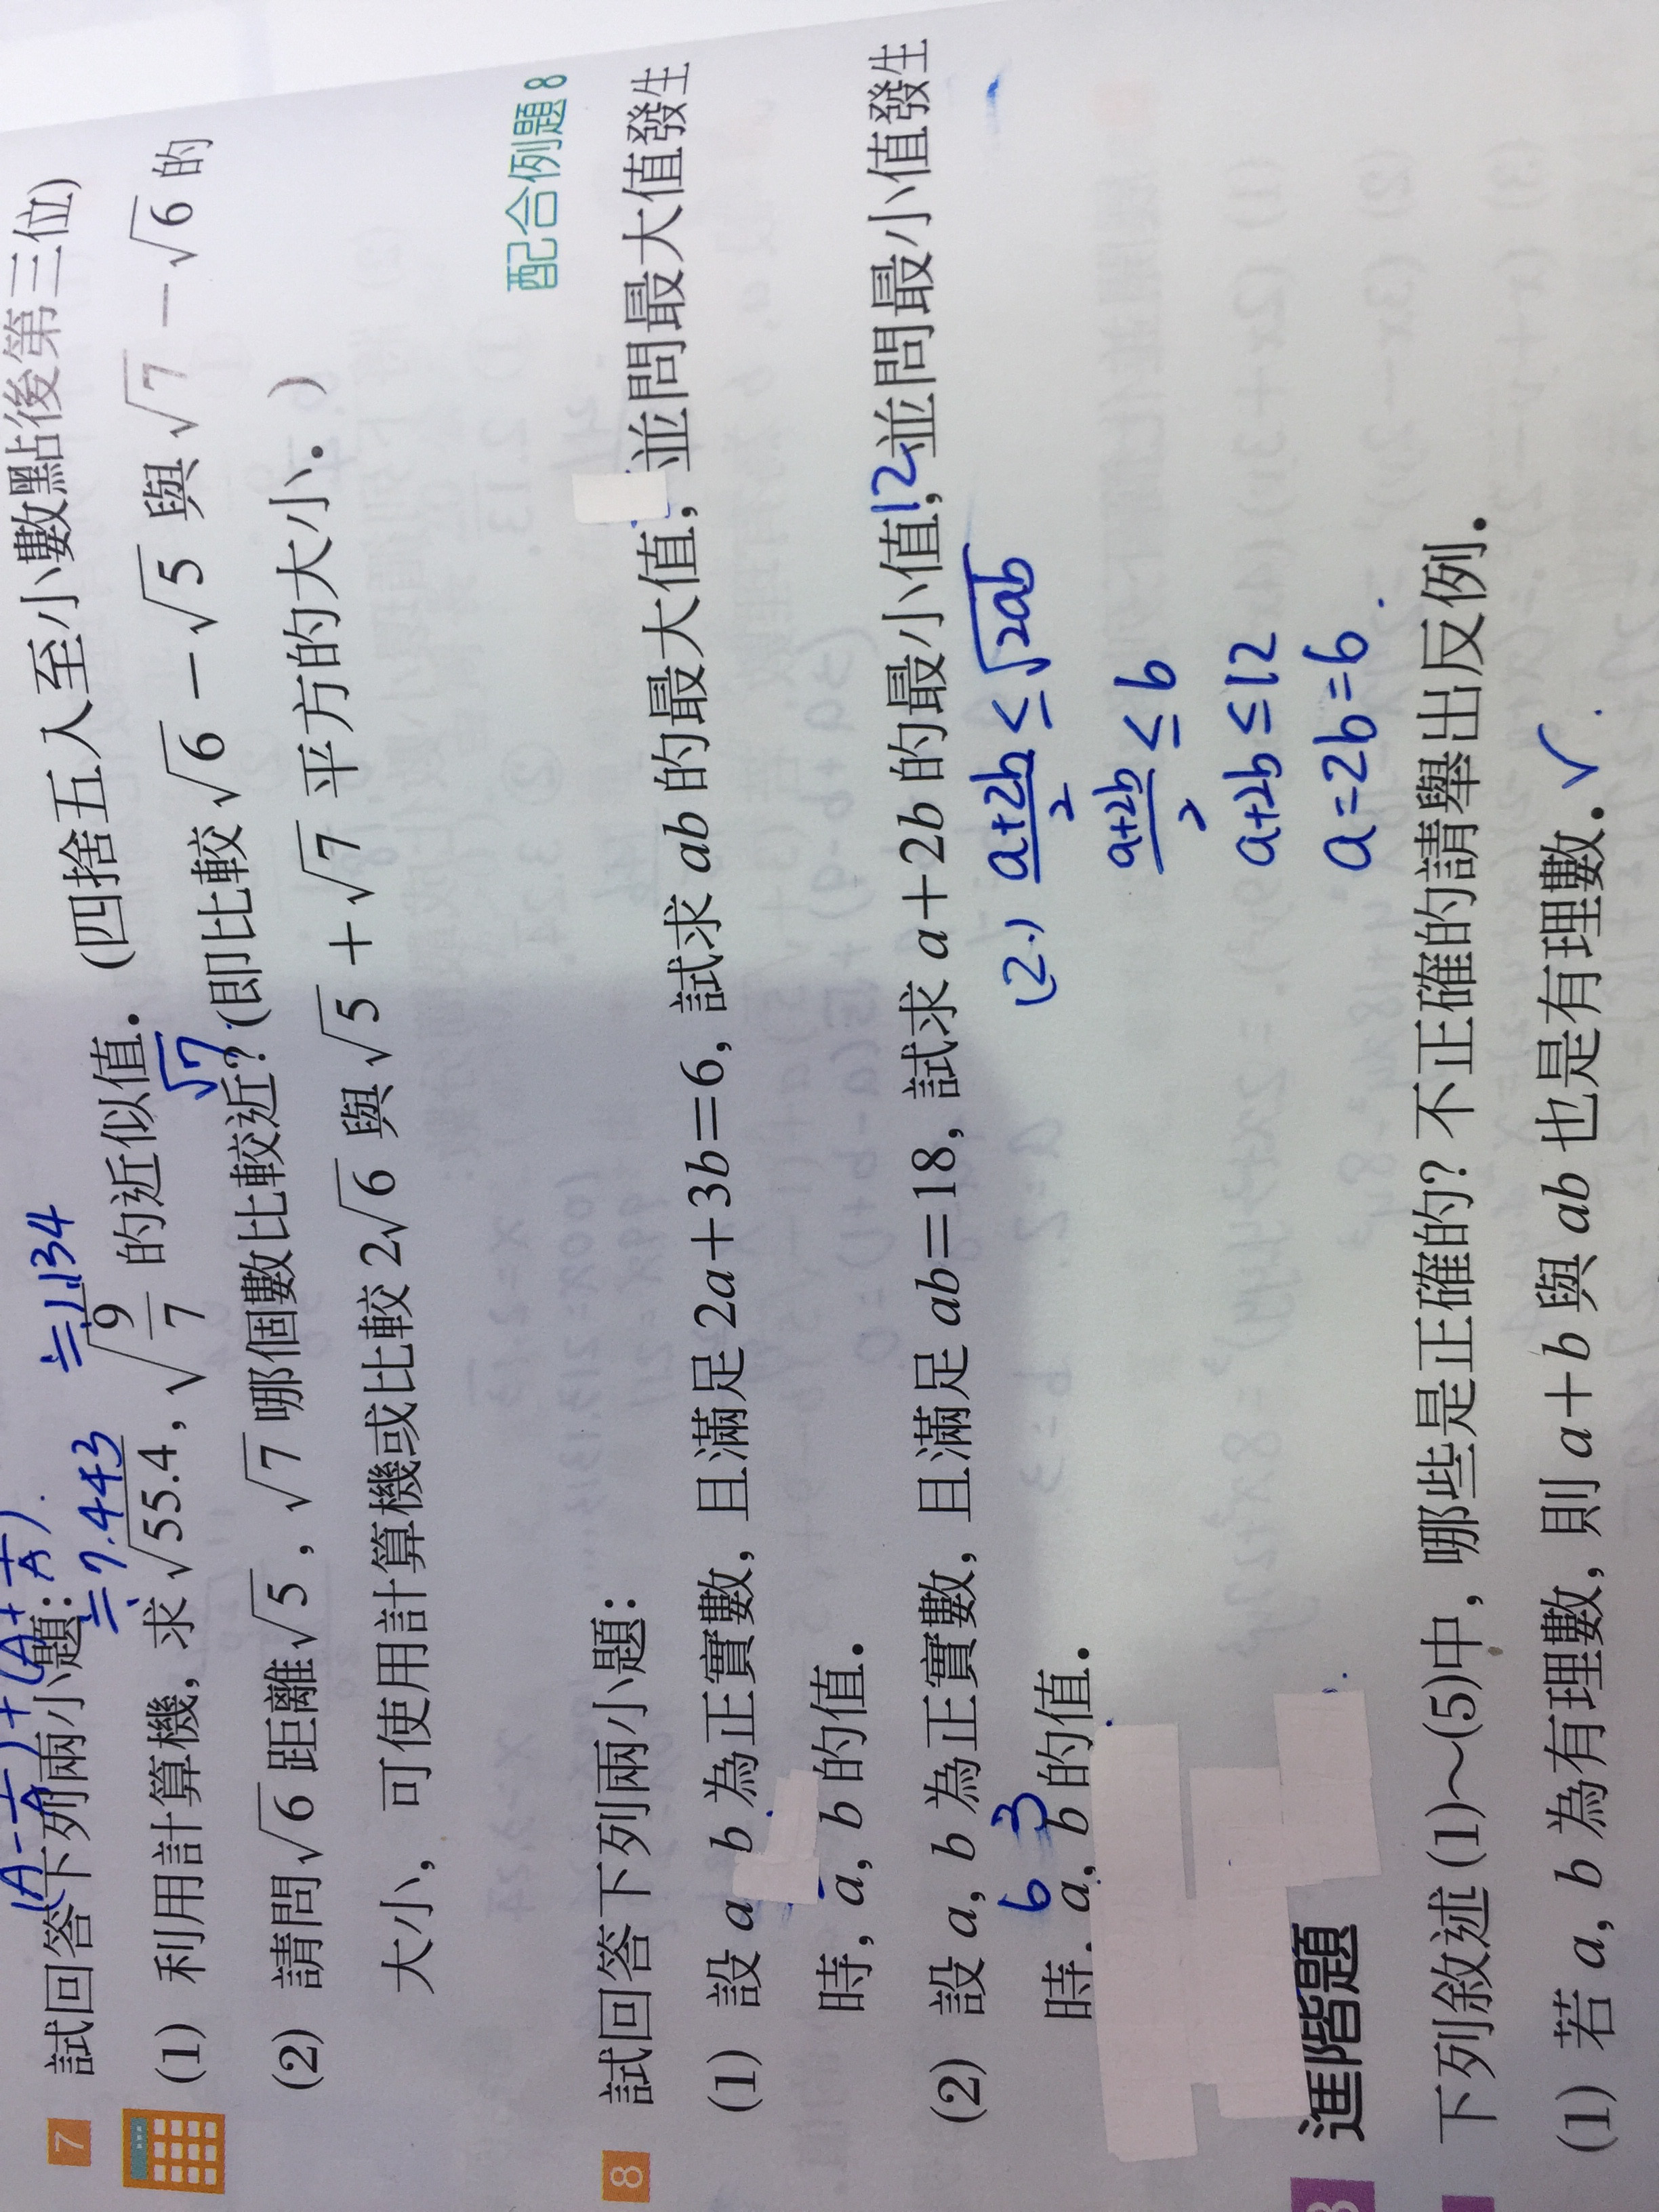 (A-1/A)+(A+1/A).
7 試回答下列兩小題: ≒7.443 ≒1.134
(1) 利用計算機, 求√55.4, √(9/7) 的近似值. (四捨五入至小數點後第三位)
√7
(2) 請問√6 距離√5, √7 哪個數比較近? (即比較√6-√5 與√7-√6 的
大小, 可使用計算機或比較 2√6 與√5+√7 平方的大小. )
配合例題 8
8 試回答下列兩小題:
(1) 設 a, b 為正實數, 且滿足 2a+3b=6, 試求 ab 的最大值, 並問最大值發生
時, a, b 的值.
(2) 設 a, b 為正實數, 且滿足 ab=18, 試求 a+2b 的最小值,12並問最小值發生
6 3
時, a, b 的值.
(2.) (a+2b)/2 ≤ √2ab
(a+2b)/2 ≤ 6
a+2b ≤ 12
a=2b=6.
進階題
下列敘述 (1)~(5)中, 哪些是正確的? 不正確的請舉出反例.
(1) 若 a, b 為有理數, 則 a+b 與 ab 也是有理數. ✓